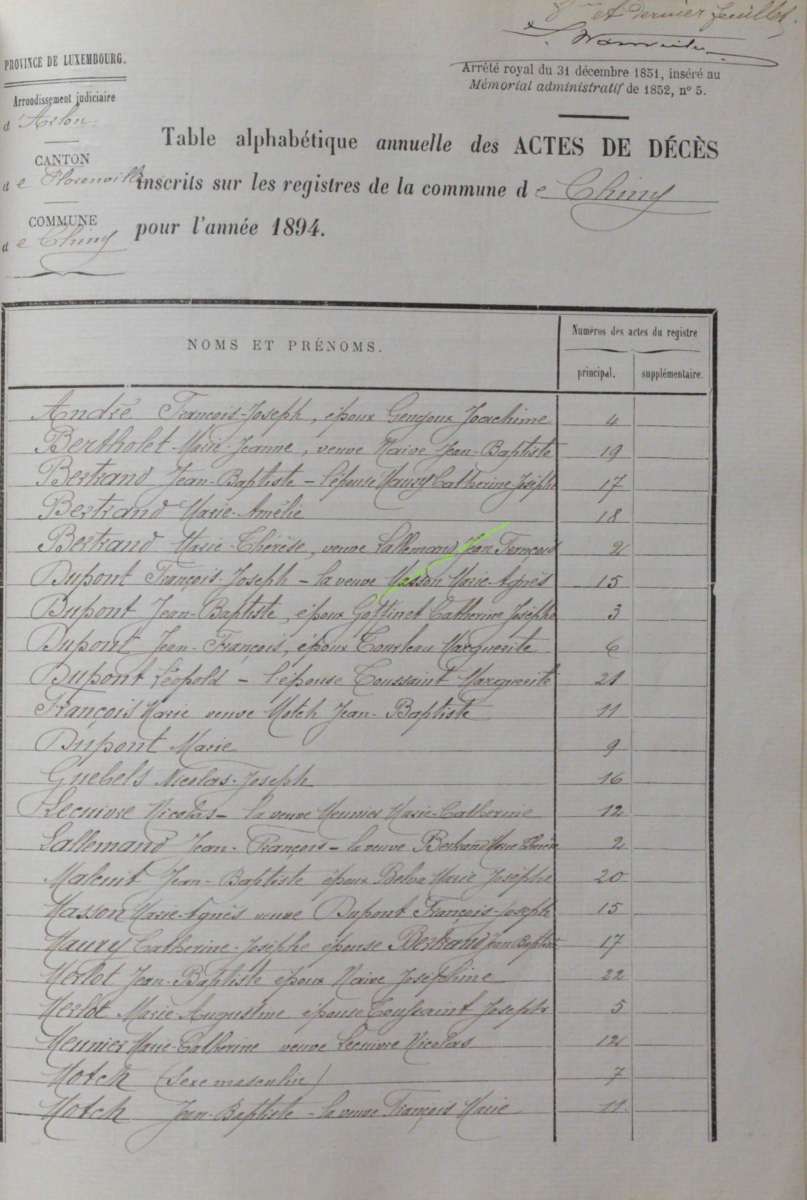 et dernier feuillet.
PROVINCE DE LUXEMBOURG.
Arrondissement judiciaire
d'Arlon.
CANTON
de Florenville
COMMUNE
de Chiny
Arrêté royal du 31 décembre 1851, inséré au
Mémorial administratif de 1852, n° 5.
Table alphabétique annuelle des ACTES DE DÉCÈS
inscrits sur les registres de la commune de Chiny
pour l'année 1894.
NOMS ET PRÉNOMS.
Numéros des actes du registre
principal. supplémentaire.
André François-Joseph, époux Gengoux Joachime 4
Bertholet Marie-Jeanne, veuve Naive Jean-Baptiste 19
Bertrand Jean-Baptiste - l'épouse Maury Catherine Josèphe 17
Bertrand Marie-Amélie 18
Bertrand Marie-Thérèse, veuve Lallemand Jean François 2
Dupont François-Joseph - la veuve Masson Marie-Agnès 15
Dupont Jean-Baptiste, époux Gottinet Catherine Josèphe 3
Dupont Jean-François, époux Tourteau Marguerite 6
Dupont Léopold - l'épouse Toussaint Marguerite 21
François Marie veuve Motch Jean-Baptiste 11
Dupont Marie 9
Guebels Nicolas-Joseph 16
Lecuivre Nicolas - la veuve Meunier Marie-Catherine 12
Lallemand Jean-François - la veuve Bertrand Marie Thérèse 2
Jean-Baptiste époux Marie Josèphe 20
Masson Marie-Agnès veuve Dupont François-Joseph 15
Maury Catherine-Josèphe épouse Bertrand Jean Baptiste 17
Merlot Jean-Baptiste époux Naive Joséphine 22
Merlot Marie Augustine épouse Toussaint Joseph 5
Meunier Marie Catherine veuve Lecuivre Nicolas 12
Motch (Sexe masculin) 7
Motch Jean-Baptiste - la veuve François Marie 11